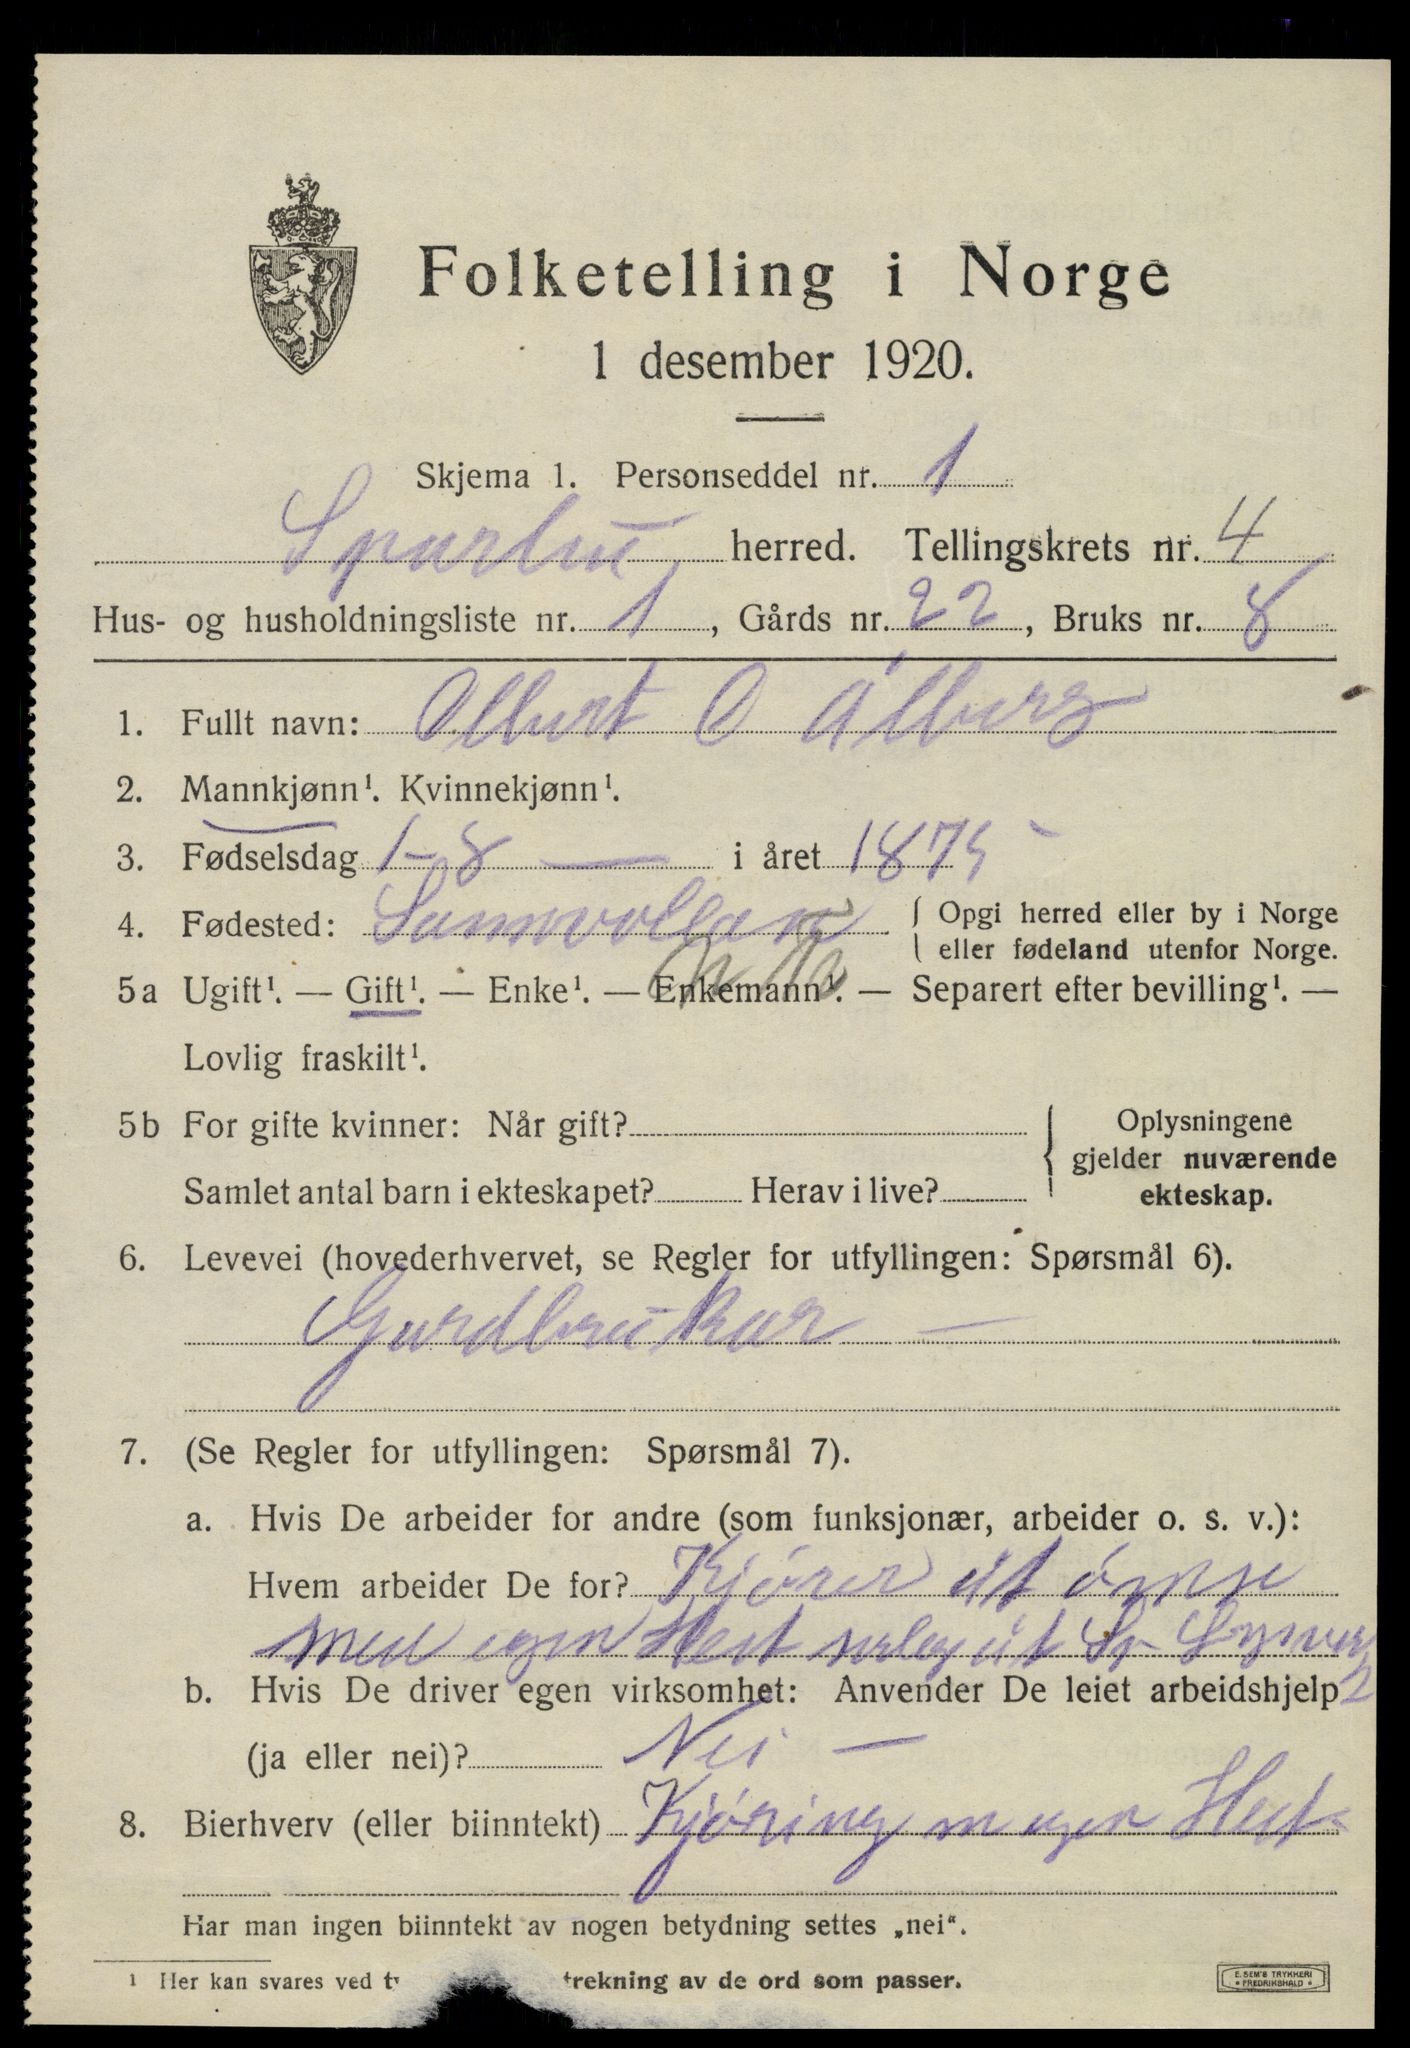 Folketelling i Norge
1 desember 1920.
Skjema 1. Personseddel nr. 1
Sparbu herred. Tellingskrets nr. 4
Hus- og husholdningsliste nr. 1, Gårds nr. 22, Bruks nr. 8
1. Fullt navn: Albert O Ålberg
2. Mannkjønn¹. Kvinnekjønn¹.
3. Fødselsdag 1-8 — i året 1875
4. Fødested: Namsos { Opgi herred eller by i Norge
eller fødeland utenfor Norge.
5a Ugift¹. — Gift¹. — Enke¹. — Enkemann¹. — Separert efter bevilling¹. —
Lovlig fraskilt¹.
5b For gifte kvinner: Når gift? Oplysningene
gjelder nuværende
Samlet antal barn i ekteskapet? Herav i live? ekteskap.
6. Levevei (hovederhvervet, se Regler for utfyllingen: Spørsmål 6).
Gardbrukar —
7. (Se Regler for utfyllingen: Spørsmål 7).
a. Hvis De arbeider for andre (som funksjonær, arbeider o. s. v.):
Hvem arbeider De for? Kjörer ut ömse
med egen Hest
b. Hvis De driver egen virksomhet: Anvender De leiet arbeidshjelp
(ja eller nei)? Nei —
8. Bierhverv (eller biinntekt) Kjöring m egen Hest
Har man ingen biinntekt av nogen betydning settes „nei".
¹ Her kan svares ved trekning av de ord som passer.
E. SEM'S TRYKKERI
FREDRIKSHALD